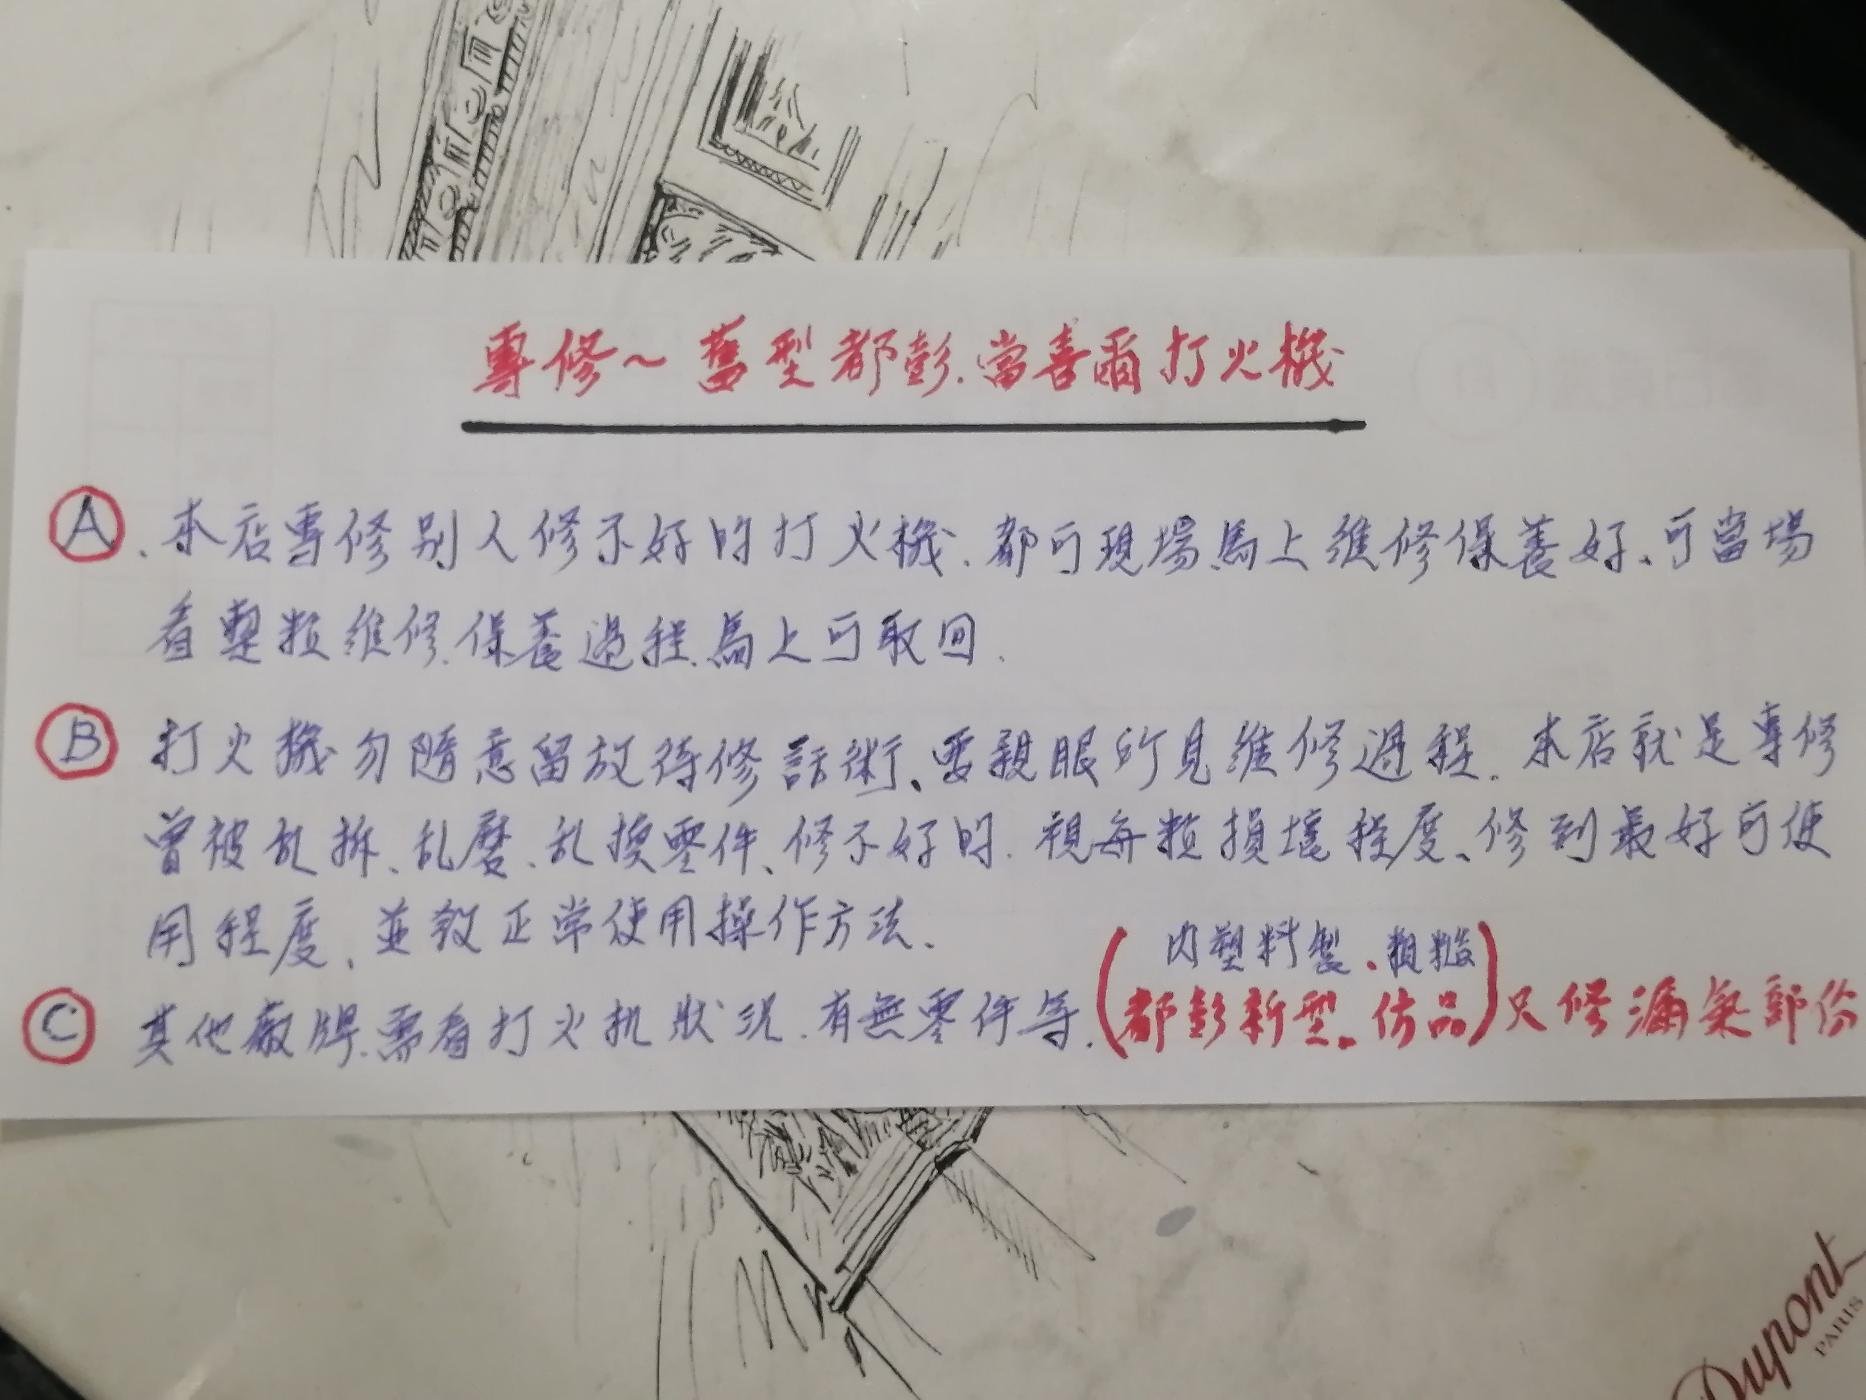 專修~舊型都彭.當喜爾打火機
A、本店專修別人修不好的打火機.都可現場馬上維修保養好、可當場
看整粒維修.保養過程.馬上可取回.
B 打火機勿隨意留放待修話術、要親眼所見維修過程.本店就是專修
曾被乱拆、乱磨、乱換零件、修不好的.視每粒損壞程度、修到最好可使
用程度、並教正常使用操作方法、
內塑料製、粗糙
C 其他廠牌.需看打火机狀況.有無零件等.(都彭新型。仿品)只修漏氣部份
Dupont
PARIS